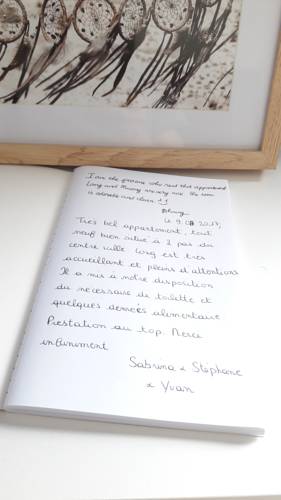 I am the persone who rent this appartment
Long and Phuong are very nice. The room
is adorable and clean
Le 9.08 2017,
Tres bel appartement, tout
neuf bien situé a 2 pas du
centre ville Long est tres
accueillant et pleins d'attentions
Il a mis à notre disposition
du necessaire de toilette et
quelques denrées alimentaire
Prestation au top. Merci
infiniment
Sabrina & Stéphane
& Yvan